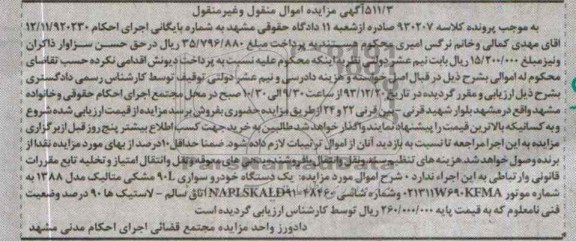 ۵۱۱/۳آگهی مزایده اموال منقول وغیرمنقول
به موجب پرونده کلاسه ۹۳۰۲۰۷ صادره ازشعبه ۱۱ دادگاه حقوقی مشهد به شماره بایگانی اجرای احکام ۱۲/۱۱/۹۲۰۲۳۰
آقای مهدی کمالی وخانم نرگس امیری محکوم شدند به پرداخت مبلغ ۳۵/۷۹۶/۸۸۰ ریال درحق حسن سزاوار ذاکران
ونیزمبلغ ۱۵/۲۰۰/۰۰۰ ریال بابت نیم عشردولتی نظربه اینکه محکوم علیه نسبت به پرداخت دیونش اقدامی نکرده حسب تقاضای
محکوم له اموالی بشرح ذیل در قبال اصل خواسته و هزینه دادرسی و نیم عشر دولتی توقیف توسط کارشناس رسمی دادگستری
بشرح ذیل ارزیابی و مقرر گردیده در تاریخ ۹۳/۱۲/۲۰ از ساعت ۹/۳۰ الی ۱۰/۳۰ صبح در محل مجتمع اجرای احکام حقوقی وخانواده
مشهد واقع در مشهد بلوار شهید قرنی – بین قرنی ۳۲ و ۳۴ از طریق مزایده حضوری بفروش برسد مزایده از قیمت ارزیابی شده شروع
و به کسانیکه بالاترین قیمت را پیشنهاد نمایند واگذار خواهد شد طالبین به خرید جهت کسب اطلاع بیشتر پنج روز قبل از برگزاری
مزایده به این اجرا مراجعه تا نسبت به بازدید آنان از اموال ترتیبات لازم داده شود. ضمنا حداقل ۱۰درصد از بهای مورد مزایده نقدا از
برنده وصول خواهد شد هزینه های تنظیم سند ونقل وانتقال بافروشنده نقل وانتقال امتیاز و تخلیه تابع مقررات
قانونی وارتباطی به این اجراء ندارد • شرح اموال مورد مزایده: یک دستگاه خودرو سواری L۹۰ مشکی متالیک مدل ۱۳۸۸ به
شماره موتور ۰۲۱۳۱۱W۶۹۰KFMA وشماره شاسی اتاق سالم – لاستیک ها ۹۰ درصد وضعیت
فنی نامعلوم که به قیمت پایه ۲۶۰/۰۰۰/۰۰۰ ریال توسط کارشناس ارزیابی گردیده است
دادورز واحد مزایده مجتمع قضائی اجرای احکام مدنی مشهد